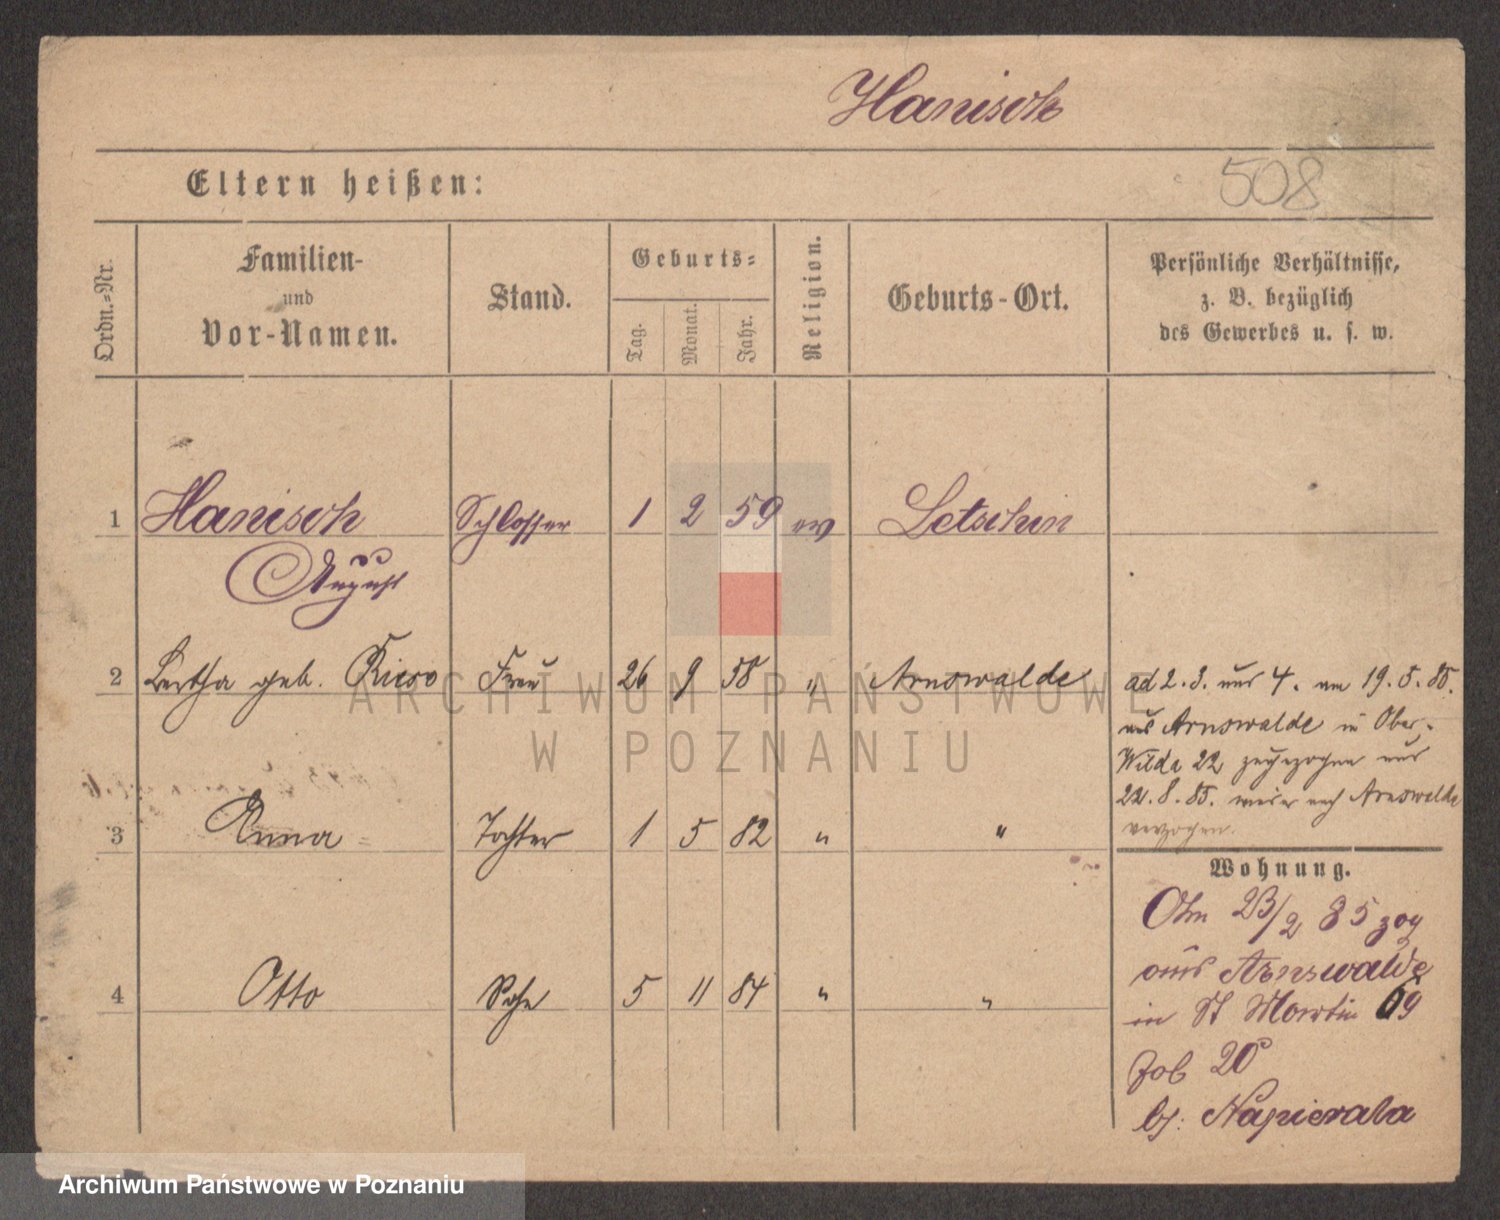 Hanisch
508
Eltern heißen:
Ordn.=Nr.
Familien-
und
Vor-Namen.
Stand.
Geburts=
Tag.
Monat.
Jahr.
Religion.
Geburts-Ort.
Persönliche Verhältnisse,
z. B. bezüglich
des Gewerbes u. s. w.
1 Hanisch Schlosser 1 2 59 ev Letschin
August
2 Bertha geb. Frau 26 9 58 " Arnswalde
ad 2. 3. und 4. am 19. 5. 85.
aus Arnswalde in Ober-
Wilda 22 zugezogen und
22. 8. 85. wieder nach Arnswalde
verzogen.
3 Anna Tochter 1 5 82 " "
Wohnung.
4 Otto Sohn 5 11 84 " "
23/2 85 zog
aus Arnswalde
in St Martin 69
20
bj: Napierala
ARCHIWUM PAŃSTWOWE
W POZNANIU
Archiwum Państwowe w Poznaniu